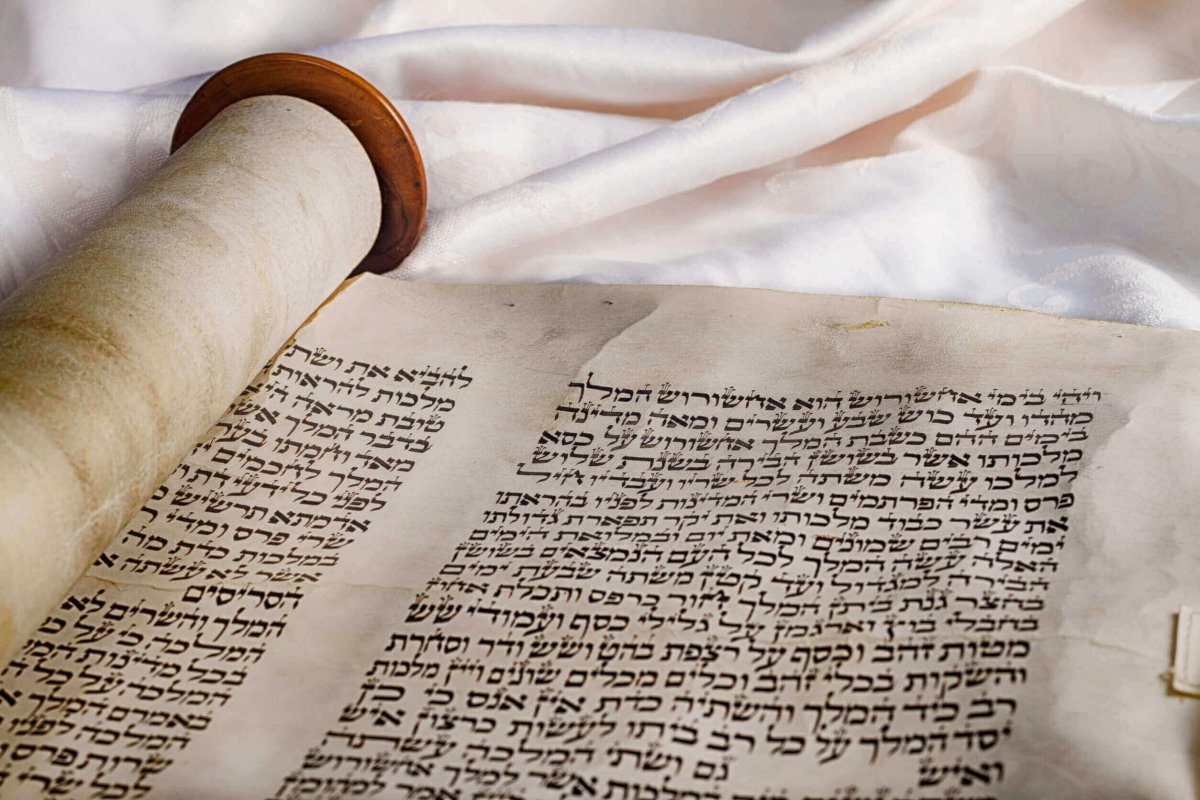 ויהי בימי אחשורוש הוא אחשורוש המלך
מהדו ועד כוש שבע ועשרים ומאה מדינה
בימים ההם כשבת המלך אחשורוש על כסא
מלכותו אשר בשושן הבירה בשנת שלוש
למלכו עשה משתה לכל שריו ועבדיו חיל
פרס ומדי הפרתמים ושרי המדינות לפניו בהראתו
את עשר כבוד מלכותו ואת יקר תפארת גדולתו
ימים רבים שמונים ומאת יום ובמלואת הימים
האלה עשה המלך לכל העם הנמצאים בשושן
הבירה למגדול ועד קטן משתה שבעת ימים
בחצר גנת ביתן המלך חור כרפס ותכלת אחוז
בחבלי בוץ וארגמן על גלילי כסף ועמודי שש
מטות זהב וכסף על רצפת בהט ושש ודר וסחרת
והשקות בכלי זהב וכלים מכלים שונים ויין מלכות
רב כיד המלך והשתיה כדת אין אנס כי כן
יסד המלך על כל רב ביתו לעשות כרצון איש
ואיש גם ושתי המלכה עשתה
אשר למלך אחשורוש
אמר למהומן
להביא את ושתי
מלכות להראות
טובת מראה היא
בדבר המלך אשר
מאד וחמתו
המלך לחכמים
לפני כל ידעי דת
אדמתא תרשיש
שרי פרס ומדי
במלכות כדת מה
אשר לא עשתה
הסריסים
המלך והשרים לא
המלכה כי על
בכל מדינות המלך
המלכה על כל
באמרם המלך
המלכה לפניו
שרות פרס
לכל שרי